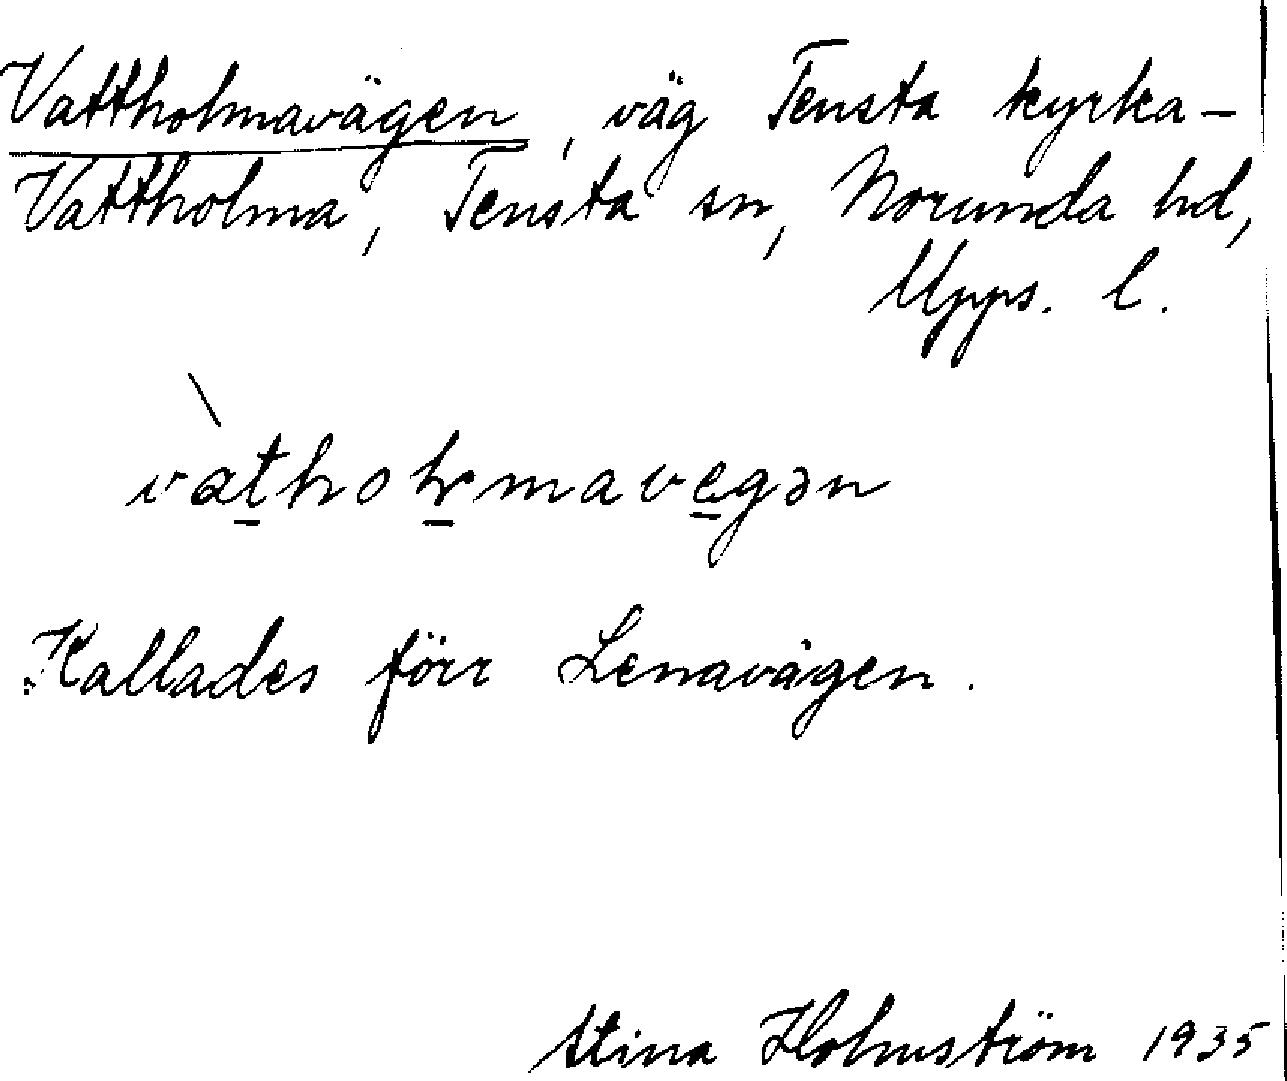 Vattholmavägen, väg Tensta kyrka –
Vattholma, Tensta sn, Norunda hd,
Upps. l.
Kallades förr Lenavägen.
Stina Holmström 1935